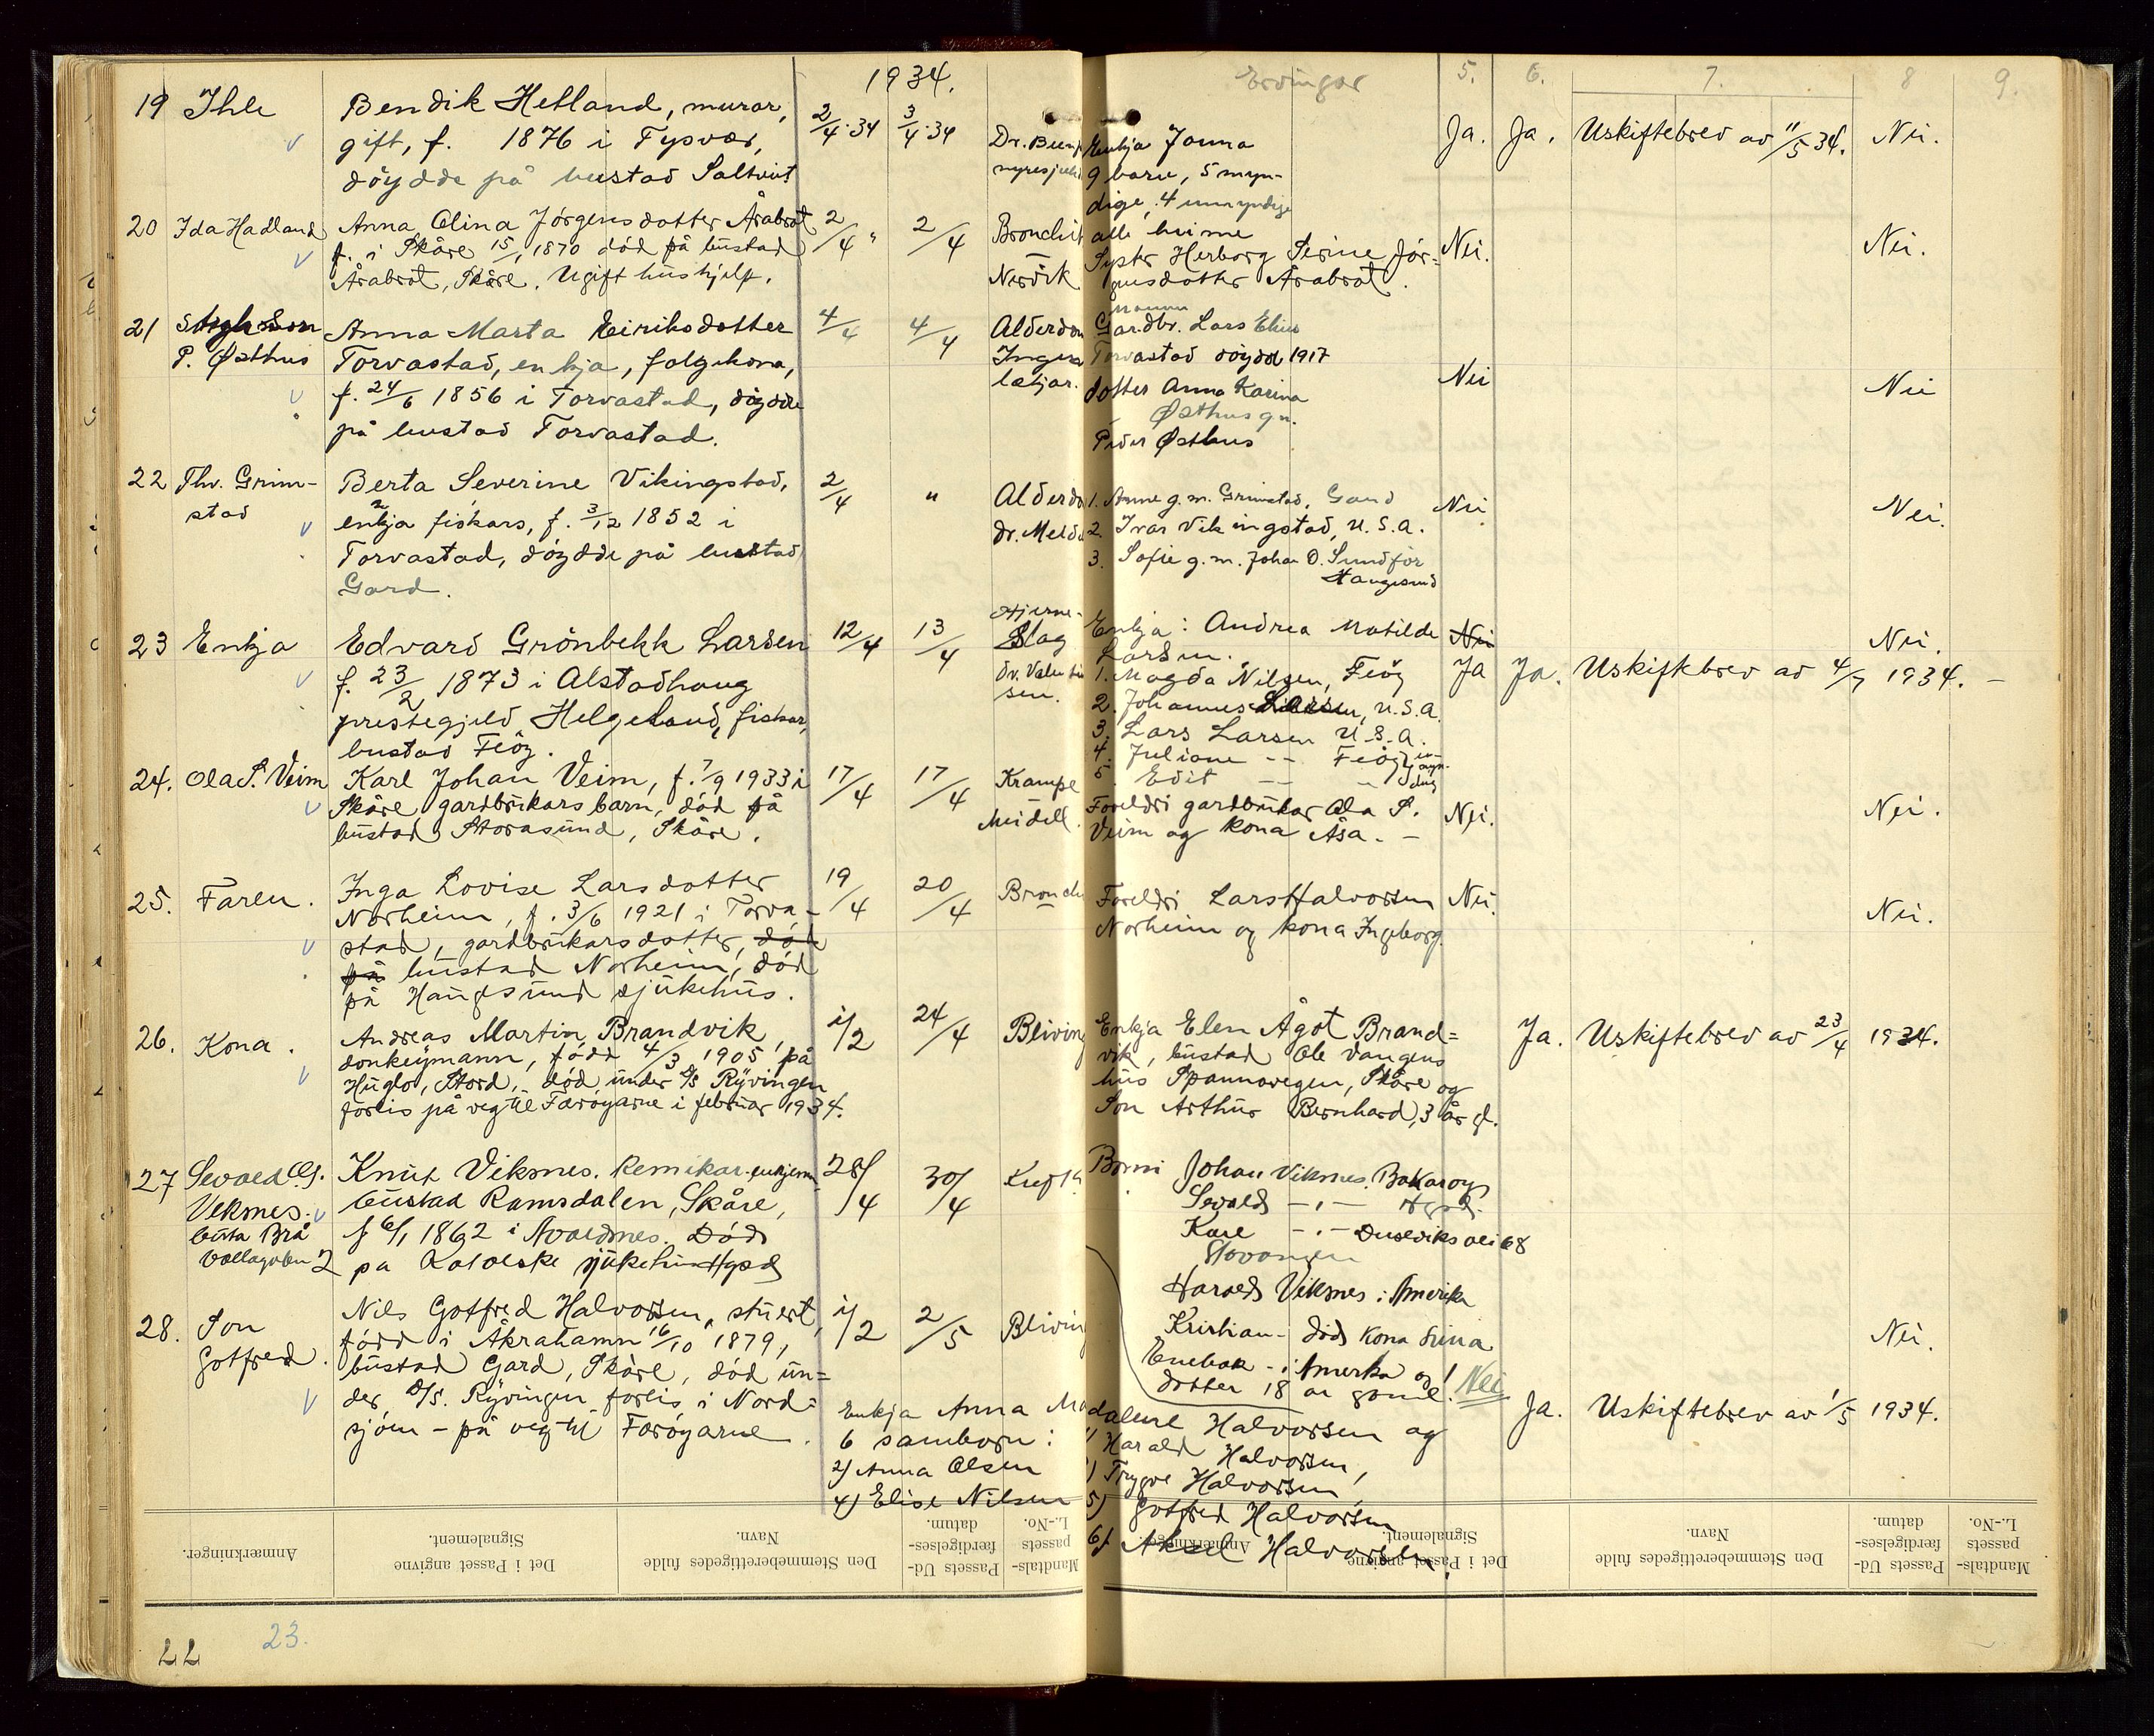 1934.
Ervingar 5. 6. 7. 8 9.
19 Ihle
Bendik Hetland, murar,
gift, f. 1876 i Tysvær,
döydde på bustad Saltveit
2/4.34 3/4.34
Dr.
Enkja Janna
9 barn, 5 myn-
dige, 4 umyndige
alle heime
Ja. Ja. Uskiftebrev av 11/5 34. Nei.
20 Ida Hadland
Anna Olina Jörgensdotter Årabrot
f. i Skåre 15/1 1870 död på bustad
Årabrot, Skåre. Ugift hushjelp.
2/4 " 2/4
Bronchit
Nerdrik
Syster Herborg Serine Jör=
gensdotter Årabrot.
Nei. Nei.
21
P. Østhus
Anna Marta Eiriksdotter
Torvastad, enkja, folgekona,
f. 24/6 1856 i Torvastad, döydde
på bustad Torvastad.
4/4 4/4
Alderdom
Ingen
lækjar.
Mannen
Gardbr. Lars Elias
Torvastad döydde 1917
dotter Anna Karina
Østhus g.m.
Peder Østhus
Nei Nei
22 Thv. Grim-
stad
Berta Severine Vikingstad,
enkja fiskars, f. 3/12 1852 i
Torvastad, döydde på bustad
Gard.
2/4 "
Alderdo
dr. Melda
1. Anne g.m. Grimstad, Gard
2. Ivar Vikingstad, U.S.A.
3. Sofie g.m. Johan O. Sundför
Haugesund
Nei Nei.
23 Enkja
Edvard Grönbekk Larsen
f. 23/2 1873 i Alstadhaug
prestegjeld Helgeland, fiskar,
bustad Feöy.
12/4 13/4
Hjerne-
slag
dr. Valentin
sen.
Enkja: Andrea Matilde
Larsen.
1. Magda Nilsen, Feöy
2. Johannes Larsen, U.S.A.
3. Lars Larsen U.S.A.
4. Juliane -- Feöy
5. Edit -- "
Nei
Ja Ja. Uskiftebrev av 4/7 1934. –
Nei.
24. Ola S. Veim
Karl Johan Veim, f. 7/9 1933 i
Skåre gardbrukars barn, död på
bustad Storasund, Skåre.
17/4 17/4
Krampe
Meidell.
Foreldri gardbrukar Ola S.
Veim og kona Åsa. –
Nei. Nei.
25. Faren.
Inga Lovise Larsdotter
Norheim, f. 3/6 1921 i Torva-
stad, gardbrukarsdotter, död
på bustad Norheim, död
på Haugesund sjukehus.
19/4 20/4
Bronch
Foreldri Lars Halvorsen
Norheim og kona Ingeborg.
Nei. Nei.
26. Kona.
Andreas Martin Brandvik,
donkeymann, född 4/3 1905 på
Huglo, Stord, död under D/S Ryvingen
forlis på veg til Færöyarne i februar 1934.
i/2 24/4
Bliving
Enkja Elen Ågot Brand=
vik, bustad Ole Vangens
hus Spannavegen, Skåre og
Son Arthur Bernhard, 3 år gl.
Ja. Uskiftebrev av 23/4 1934.
27 Sevald
Veksnes.
Knut Veksnes. Kemikar. enkjem
bustad Ramsdalen, Skåre,
f 6/1 1862 i Avaldsnes. Död
på Katolske sjukehus Hgsd
28/4 30/4
Borni Johan Veksnes. Bakarøy
Sevald – " – Hgsd.
Karl – " – 68
Stavanger
Harald Veksnes i Amerika
Kristian – död kona Sina
– i Amerka og 1
dotter 18 år gamel. Nei
28. Son
Gotfred.
Nils Gotfred Halvorsen, stuert,
född i Åkrahamn 16/10 1879,
bustad Gard, Skåre, död un=
der D/S. Ryvingen forlis i Nord=
sjöen – på veg til Færöyarne.
i/2 2/5
Bliving
Nei.
Enkja Anna Madalene Halvorsen og
6 samborn: 1) Harald Halvorsen,
2) Anna Olsen 3) Trygve Halvorsen,
4) Elise Nilsen 5) Gotfred Halvorsen
6) Aksel Halvorsen.
Ja. Uskiftebrev av 1/5 1934.
Anmærkninger. Det i Passet angivne Signalement. Den Stemmeberettigedes fulde Navn. Passets Ud-færdigelses-datum. Mandtals-passets L.-No.
Anmærkninger. Det i Passet angivne Signalement. Den Stemmeberettigedes fulde Navn. Passets Ud-færdigelses-datum. Mandtals-passets L.-No.
22 23.